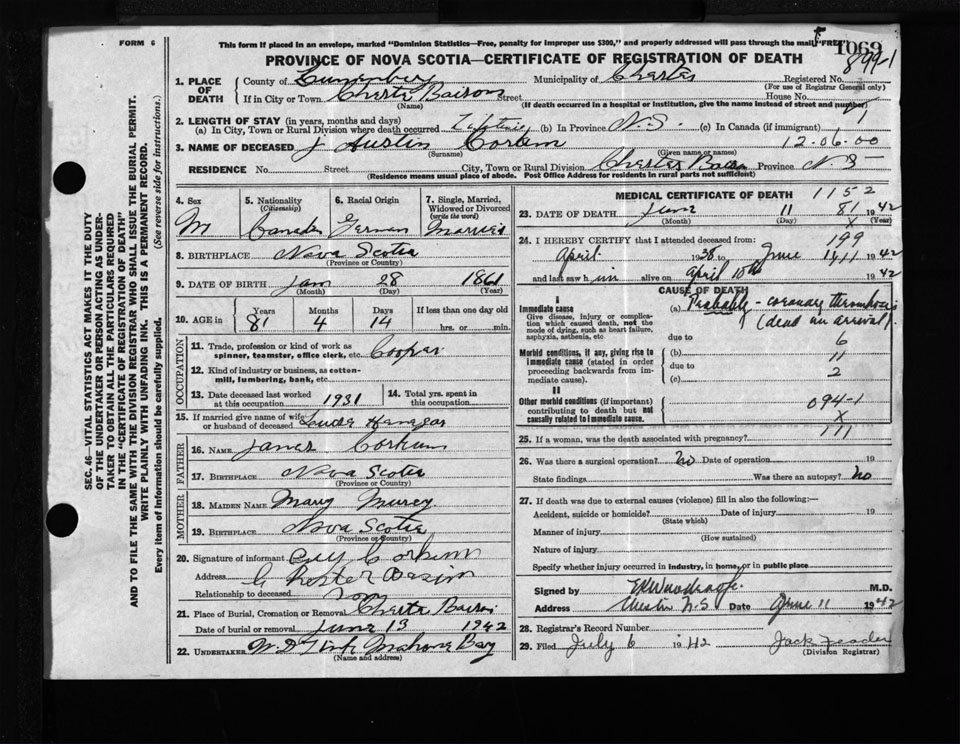 FORM 6
This form if placed in an envelope, marked "Dominion Statistics—Free, penalty for improper use $300," and properly addressed will pass through the mail "FREE
1069
899-1
PROVINCE OF NOVA SCOTIA—CERTIFICATE OF REGISTRATION OF DEATH
1. PLACE OF DEATH
County of Lunenburg Municipality of Chester Registered No.
(For use of Registrar General only)
If in City or Town Street House No.
(Name) (If death occurred in a hospital or institution, give the name instead of street and number)
2. LENGTH OF STAY (in years, months and days)
(a) In City, Town or Rural Division where death occurred Lifetime (b) In Province N.S. (c) In Canada (if immigrant)
12.06.00
3. NAME OF DECEASED J Austin Corkum
(Surname) (Given name or names)
RESIDENCE No. Street City, Town or Rural Division Chester Basin Province N S
(Residence means usual place of abode. Post Office Address for residents in rural parts not sufficient)
4. Sex
M
5. Nationality (Citizenship)
Canadian
6. Racial Origin
German
7. Single, Married, Widowed or Divorced (write the word)
Married
8. BIRTHPLACE Nova Scotia
(Province or Country)
9. DATE OF BIRTH Jan 28 1861
(Month) (Day) (Year)
10. AGE in Years Months Days If less than one day old
81 4 14 hrs. or min.
OCCUPATION
11. Trade, profession or kind of work as spinner, teamster, office clerk, etc. Cooper
12. Kind of industry or business, as cotton-mill, lumbering, bank, etc.
13. Date deceased last worked at this occupation 1931
14. Total yrs. spent in this occupation
15. If married give name of wife or husband of deceased
FATHER
16. NAME James Corkum
17. BIRTHPLACE Nova Scotia
(Province or Country)
MOTHER
18. MAIDEN NAME Mary
19. BIRTHPLACE Nova Scotia
(Province or Country)
20. Signature of informant Corkum
Address Chester Basin
Relationship to deceased Son
21. Place of Burial, Cremation or Removal Chester Basin
Date of burial or removal June 13 1942
22. UNDERTAKER Mahone Bay
(Name and address)
MEDICAL CERTIFICATE OF DEATH
1152
23. DATE OF DEATH June 11 81 1942
(Month) (Day) X (Year)
24. I HEREBY CERTIFY that I attended deceased from:
199
April 1938 to June 11 1942
and last saw him alive on April 10th 1942
CAUSE OF DEATH
I
Immediate cause
Give disease, injury or complication which caused death, not the mode of dying, such as heart failure, asphyxia, asthenia, etc
(a) Probably - coronary thrombosis
(dead on arrival)
due to 6
Morbid conditions, if any, giving rise to immediate cause (stated in order proceeding backwards from immediate cause).
(b) 11
due to 2
(c)
II
Other morbid conditions (if important) contributing to death but not causally related to immediate cause.
094-1
X
111
25. If a woman, was the death associated with pregnancy?
26. Was there a surgical operation? No Date of operation 19
State findings Was there an autopsy? No
27. If death was due to external causes (violence) fill in also the following:—
Accident, suicide or homicide? Date of injury 19
(State which)
Manner of injury
(How sustained)
Nature of injury
Specify whether injury occurred in industry, in home, or in public place
Signed by M.D.
Address Chester N.S Date June 11 1942
28. Registrar's Record Number
29. Filed July 6 1942 Jack
(Division Registrar)
SEC. 46—VITAL STATISTICS ACT MAKES IT THE DUTY
OF THE UNDERTAKER OR PERSON ACTING AS UNDER-
TAKER TO OBTAIN ALL THE PARTICULARS REQUIRED
IN THE "CERTIFICATE OF REGISTRATION OF DEATH"
AND TO FILE THE SAME WITH THE DIVISION REGISTRAR WHO SHALL ISSUE THE BURIAL PERMIT.
WRITE PLAINLY WITH UNFADING INK. THIS IS A PERMANENT RECORD.
Every item of information should be carefully supplied. (See reverse side for instructions.)